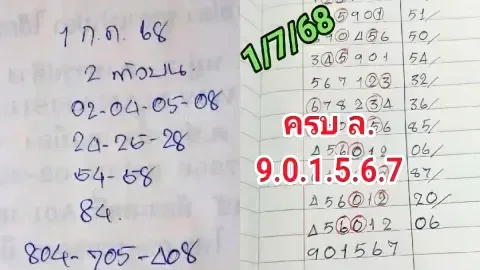 1 ก.ค. 68
2 ตัวบน.
02-04-05-08
24-25-28
54-58
84.
804-705-408
1/7/68
5901 51/
90456 50/
345901 54/
567123 32/
678234 36/
56 85/
ครบ ล.
456012 06/
9.0.1.5.6.7
87/
456012 20/
456012 06
901567